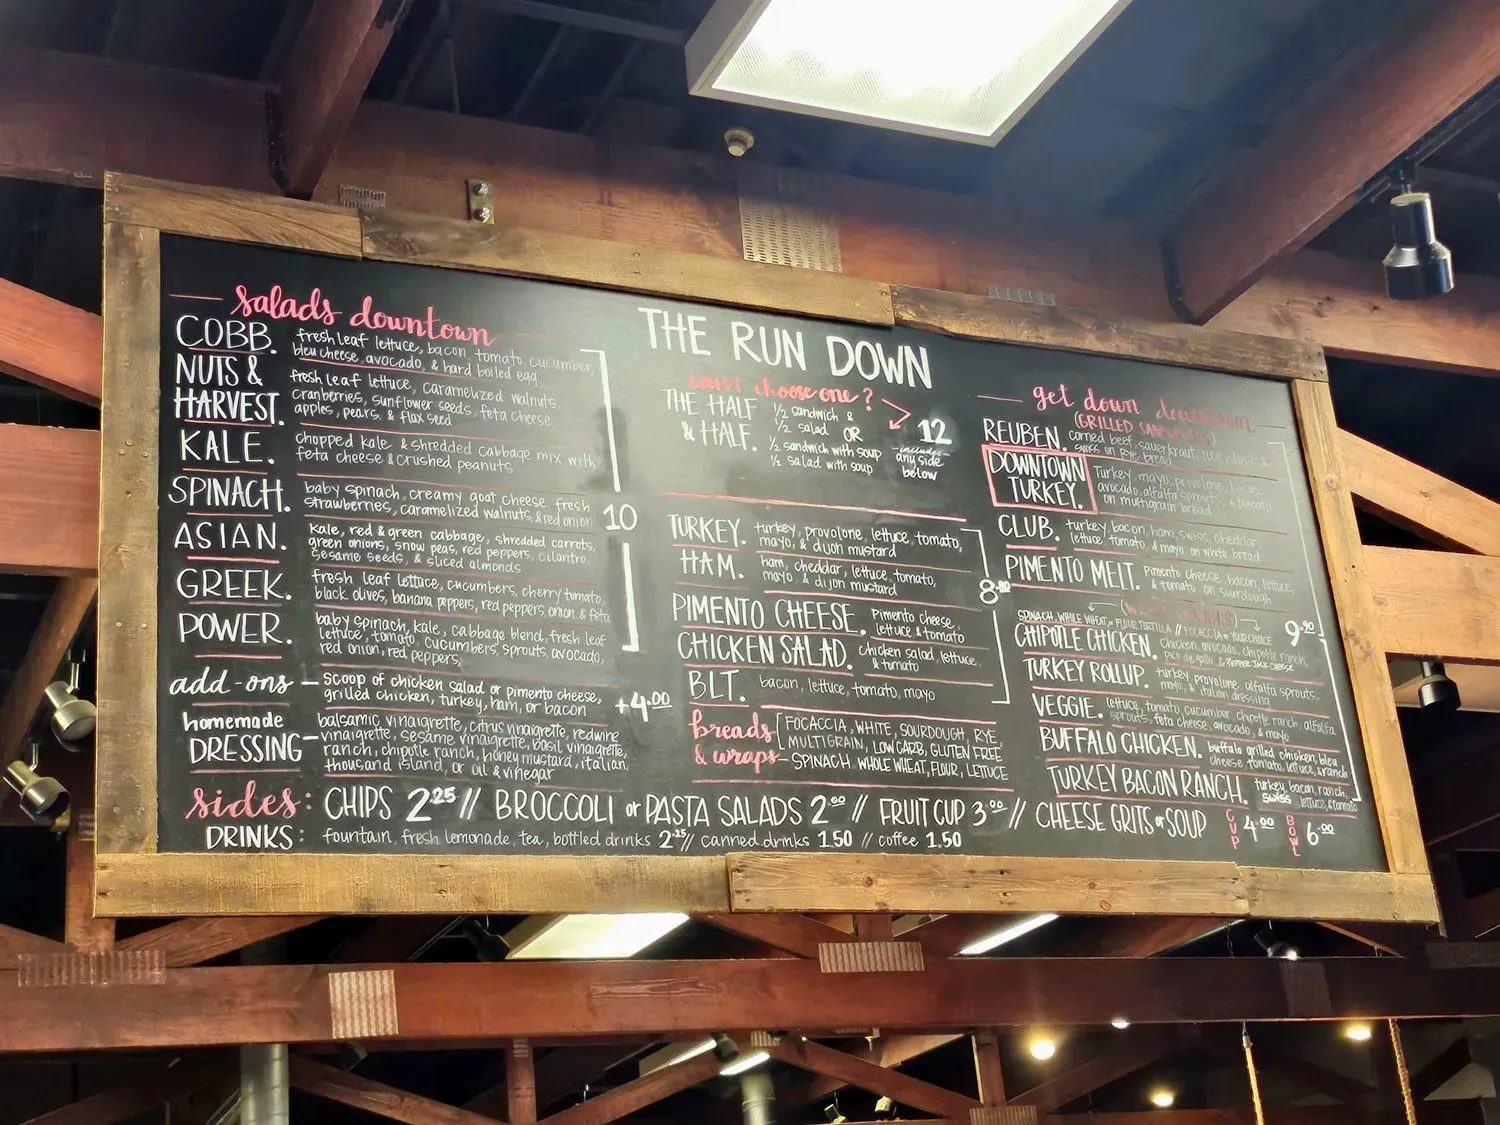 salads downtown
COBB. fresh leaf lettuce, bacon, tomato, cucumber,
bleu cheese, avocado, & hard boiled egg
NUTS & HARVEST. fresh leaf lettuce, caramelized walnuts,
cranberries, sunflower seeds, feta cheese
apples, pears, & flax seed
KALE. chopped kale & shredded cabbage mix with
feta cheese & crushed peanuts
SPINACH. baby spinach, creamy goat cheese, fresh
strawberries, caramelized walnuts, & red onion
10
ASIAN. kale, red & green cabbage, shredded carrots,
green onions, snow peas, red peppers, cilantro
sesame seeds, & sliced almonds
GREEK. fresh leaf lettuce, cucumbers, cherry tomato,
black olives, banana peppers, red peppers, onion & feta
POWER. baby spinach, kale, cabbage blend, fresh leaf
lettuce, tomato, cucumbers, sprouts, avocado,
red onion, red peppers,
add-ons – scoop of chicken salad or pimento cheese,
grilled chicken, turkey, ham, or bacon
+4.00
homemade DRESSING – balsamic vinaigrette, citrus vinaigrette, redwine
vinaigrette, sesame vinaigrette, basil vinaigrette,
ranch, chipotle ranch, honey mustard, italian,
thousand island, or oil & vinegar
THE RUN DOWN
can't choose one?
THE HALF & HALF. 1/2 sandwich &
1/2 salad OR
1/2 sandwich with soup
1/2 salad with soup
12
includes
any side
below
TURKEY. turkey, provolone, lettuce, tomato,
mayo, & dijon mustard
HAM. ham, cheddar, lettuce, tomato,
mayo & dijon mustard
8.90
PIMENTO CHEESE. Pimento cheese,
lettuce & tomato
CHICKEN SALAD. chicken salad, lettuce,
& tomato
BLT. bacon, lettuce, tomato, mayo
breads & wraps FOCACCIA, WHITE, SOURDOUGH, RYE,
MULTIGRAIN, LOW CARB, GLUTEN FREE
– SPINACH, WHOLE WHEAT, FLOUR, LETTUCE
get down downtown
(GRILLED SANDWICHES)
REUBEN. corned beef, sauerkraut, 1000 island, &
swiss on Rye bread
DOWNTOWN TURKEY. Turkey, mayo, provolone, bacon,
avocado, alfalfa sprouts, & tomato
on multigrain bread
CLUB. turkey, bacon, ham, swiss, cheddar,
lettuce, tomato, & mayo on white bread
PIMENTO MELT. Pimento cheese, bacon, lettuce,
& tomato on sourdough
SPINACH, WHOLE WHEAT, or FLOUR TORTILLA // FOCACCIA YOUR CHOICE
9.90
CHIPOTLE CHICKEN. Chicken, avocado, chipotle ranch,
pico de gallo, & PEPPER JACK CHEESE
TURKEY ROLLUP. turkey, provolone, alfalfa sprouts,
mayo, & italian dressing
VEGGIE. lettuce, tomato, cucumber, chipotle ranch, alfalfa
sprouts, feta cheese, avocado, & mayo
BUFFALO CHICKEN. buffalo grilled chicken, bleu
cheese, tomato, lettuce, & ranch
TURKEY BACON RANCH. turkey, bacon, ranch,
swiss, lettuce, & tomato
sides: CHIPS 2.25 // BROCCOLI or PASTA SALADS 2.00 // FRUIT CUP 3.00 // CHEESE GRITS or SOUP CUP 4.00 BOWL 6.00
DRINKS: fountain, fresh lemonade, tea, bottled drinks 2.25 // canned drinks 1.50 // coffee 1.50